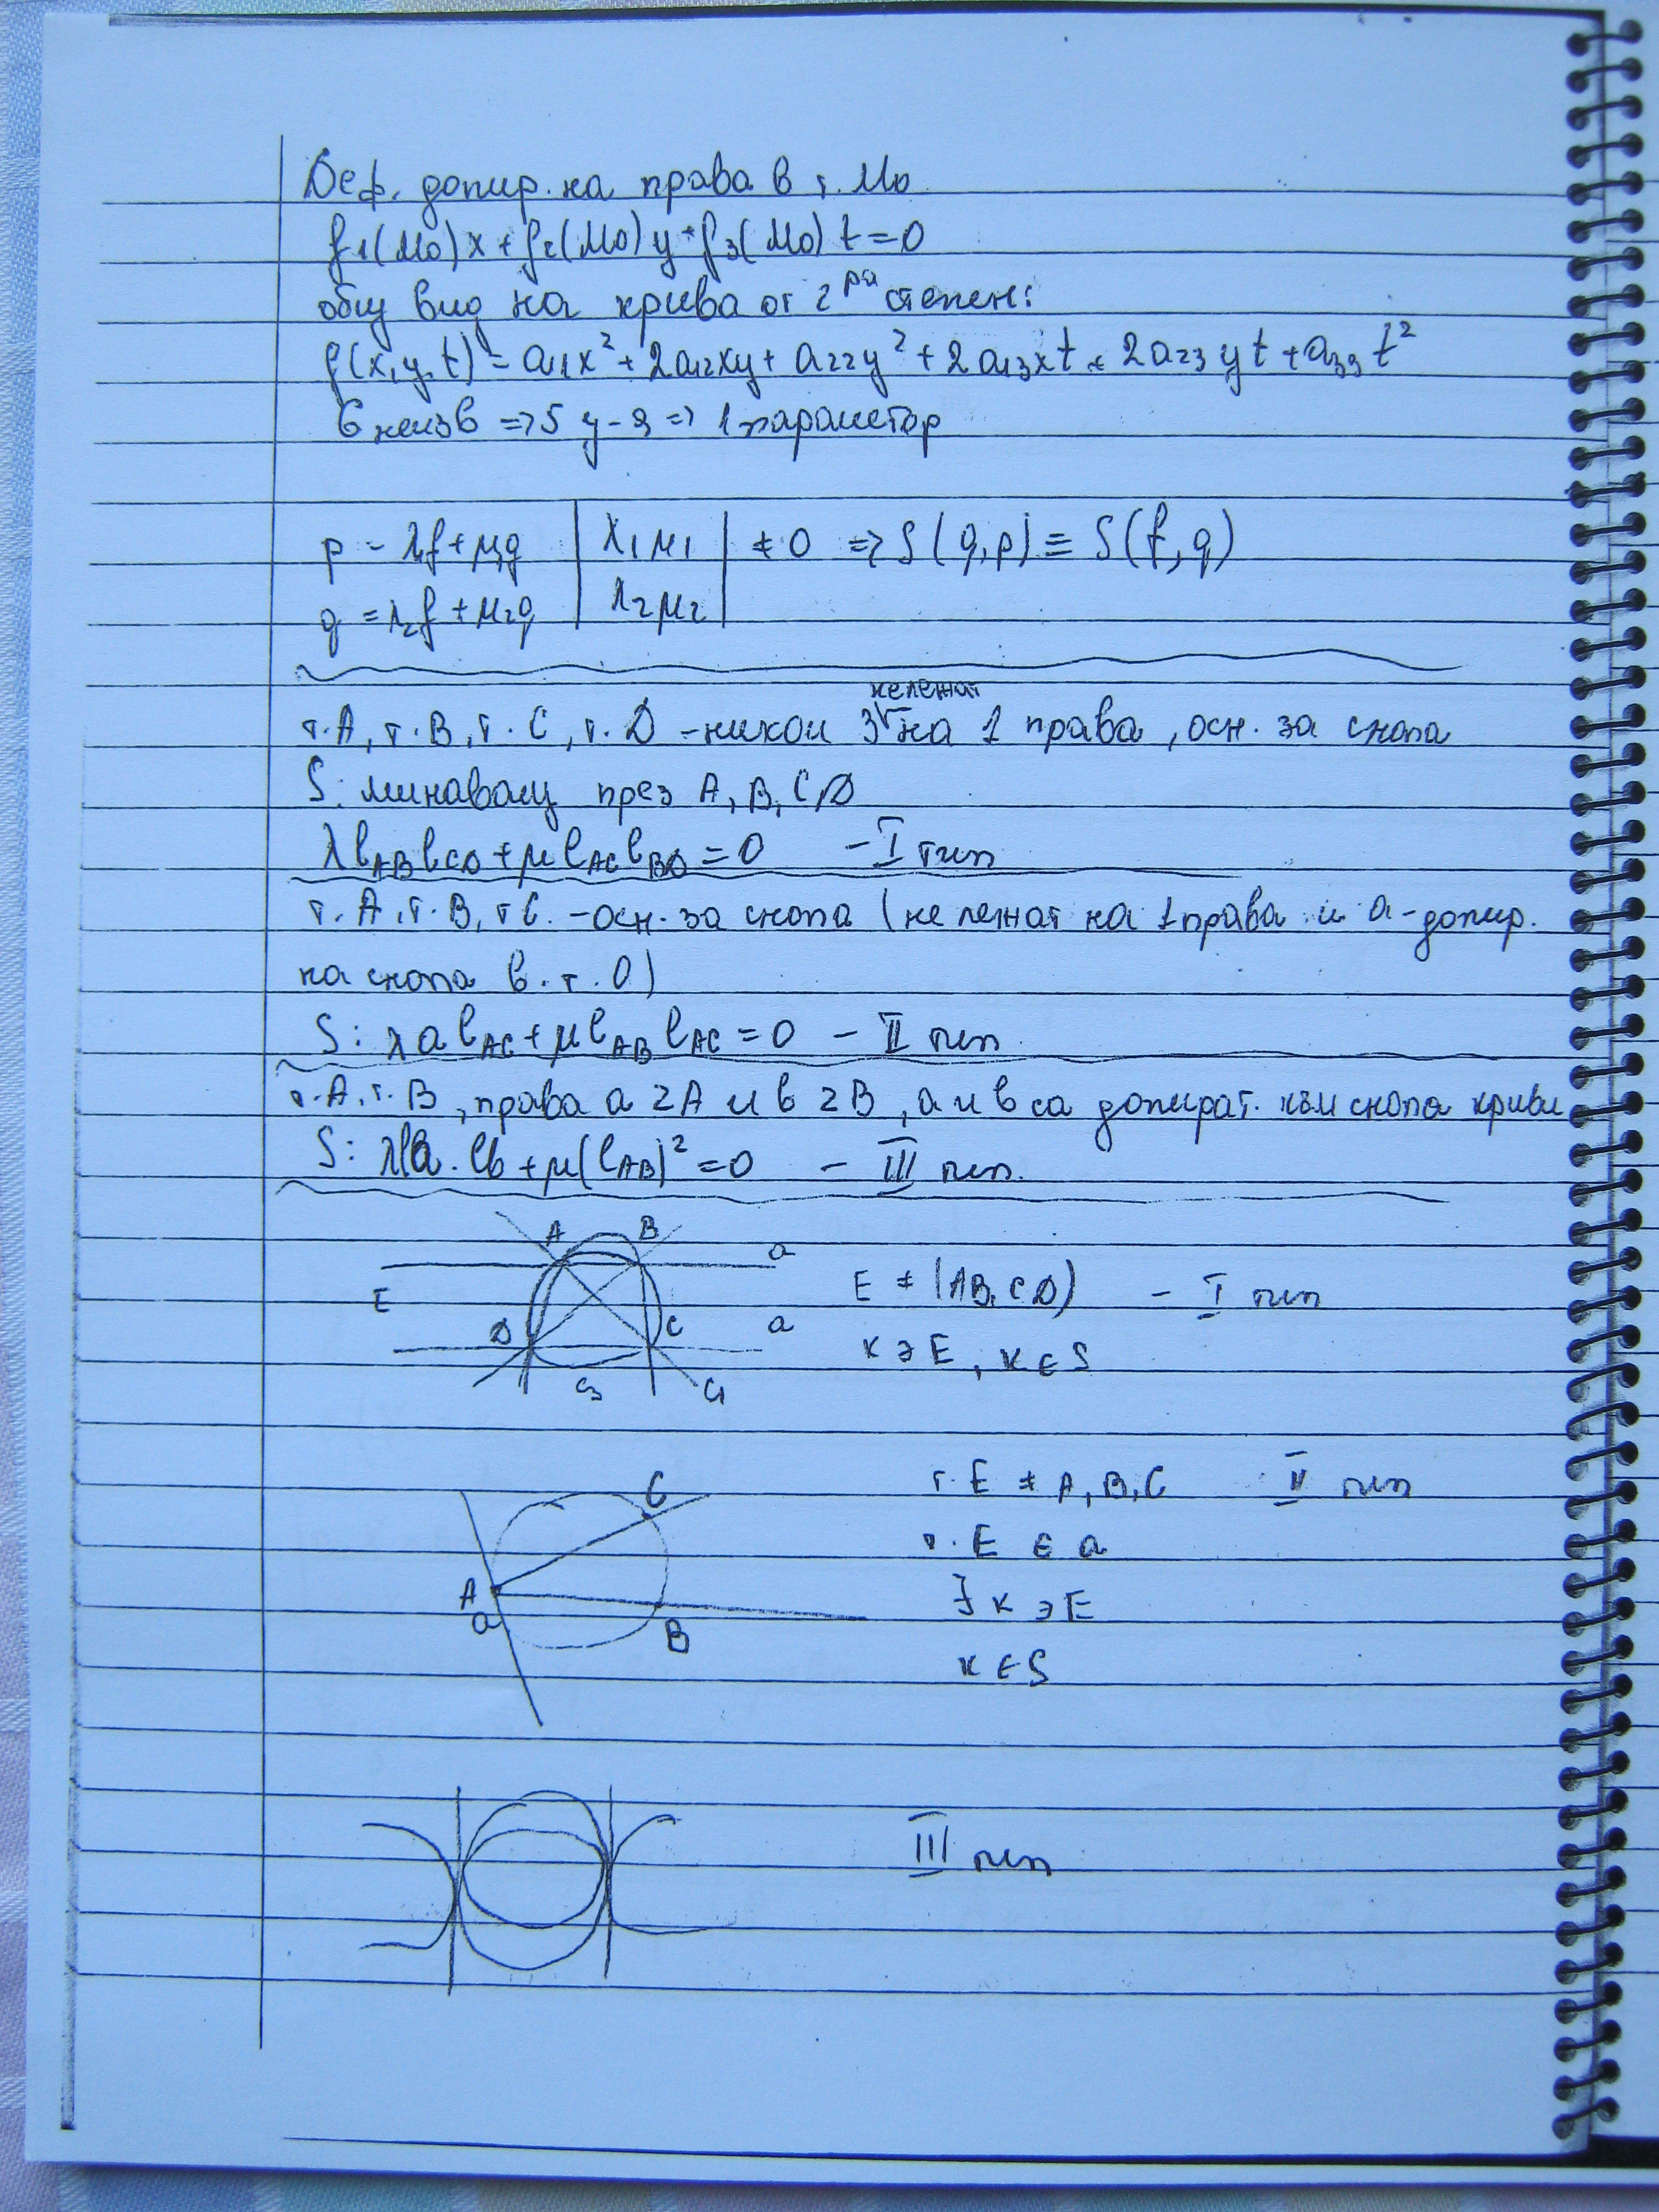 Деф. допир. на права в т. M₀
f₁(M₀)x + f₂(M₀)y + f₃(M₀)t = 0
общ вид на крива от 2ра степен:
f(x,y,t) = a₁₁x² + 2a₁₂xy + a₂₂y² + 2a₁₃xt + 2a₂₃yt + a₃₃t²
6 неизв => 5 у-я => 1 параметър
p = λ₁f + μ₁g | λ₁ μ₁ | ≠ 0 => S(q,p) ≡ S(f,g)
q = λ₂f + μ₂g | λ₂ μ₂ |
не лежат
т. A, т. B, т. C, т. D – никои 3 на 1 права, осн. за снопа
S: минаващ през A, B, C, D
λ l_AB l_CD + μ l_AC l_BD = 0 – I тип
т. A, т. B, т. C. – осн. за снопа (не лежат на 1 права и a – допир.
на снопа в. т. O)
S: λ a l_AC + μ l_AB l_AC = 0 – II тип
т. A, т. B, права a z A и b z B, a и b са допират. към снопа криви
S: λ la . lb + μ(l_AB)² = 0 – III тип.
A B a
E E ≠ (AB, CD) – I тип
D C a
K ∋ E, K ∈ S
C₃ C₁
C т. E ≠ A, B, C II тип
т. E ∈ a
A ∃ K ∋ E
a B
K ∈ S
III тип